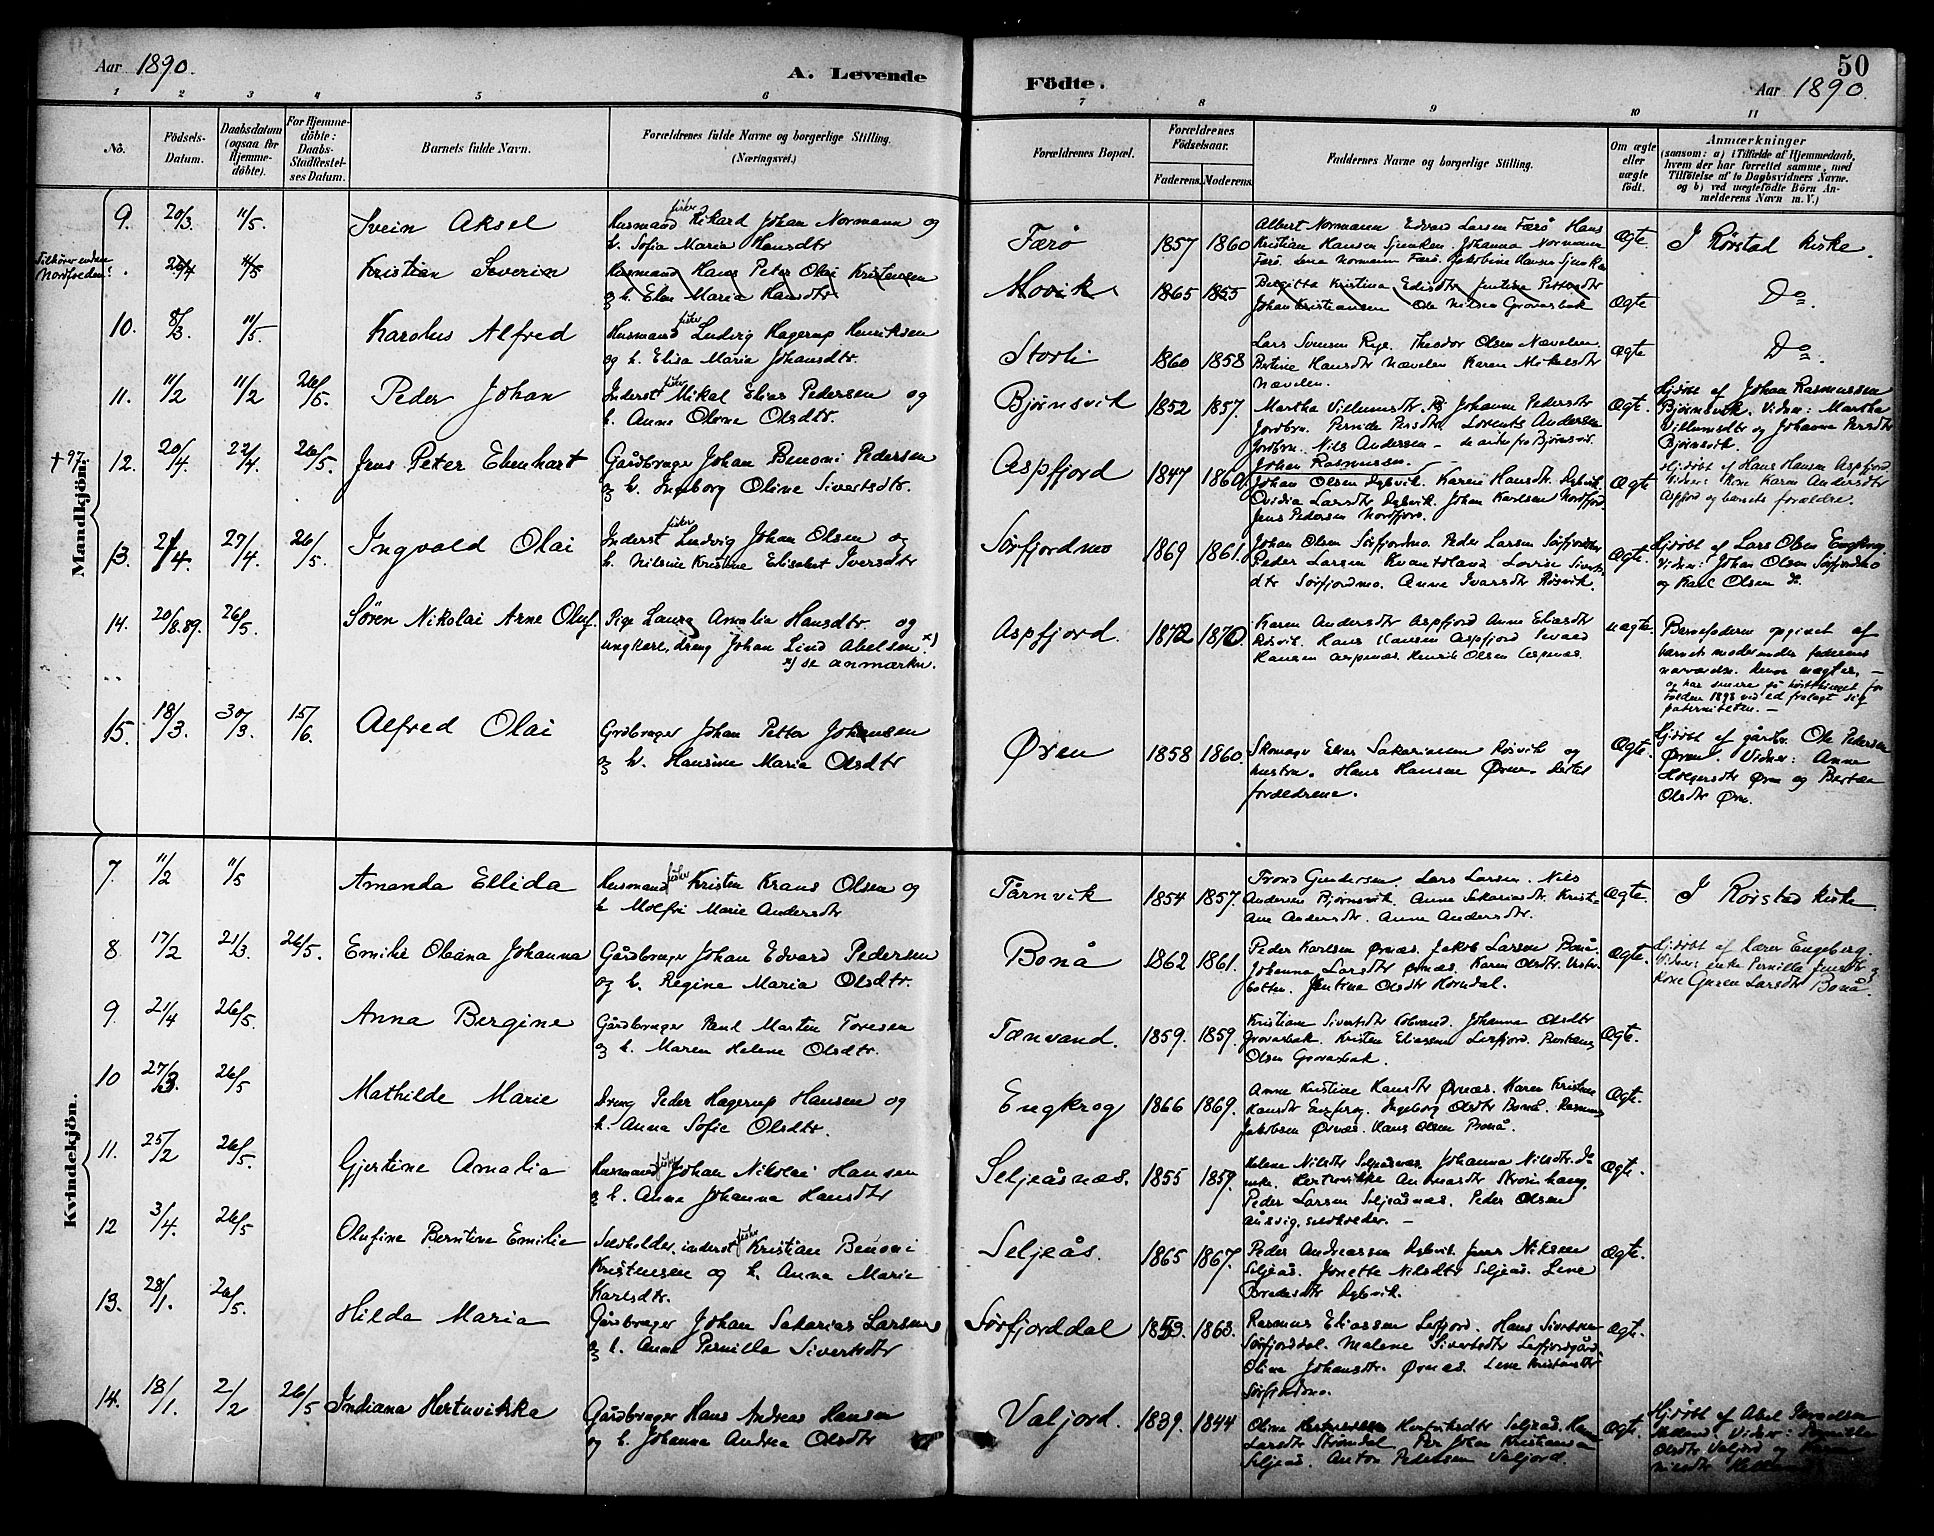 Aar 1890.
A. Levende
Födte.
50
Aar 1890
1 2 3 4 5 6 7 8 9 10 11
No.
Födsels-
Datum.
Daabsdatum
(ogsaa for
Hjemme-
döbte).
For Hjemme-
döbte:
Daabs-
Stadfæstel-
ses Datum.
Barnets fulde Navn.
Forældrenes fulde Navne og borgerlige Stilling.
(Næringsvei.)
Forældrenes Bopæl.
Forældrenes
Födselsaar.
Faderens. Moderens.
Faddernes Navne og borgerlige Stilling.
Om ægte
eller
uægte
födt.
Anmærkninger
(saasom: a) i Tilfælde af Hjemmedaab,
hvem der har forrettet samme, med
Tilföielse af to Daabsvidners Navne.
og b) ved uægtefödte Börn An-
melderens Navn m. V.)
Mandkjön.
9. 20/3 11/5. Svein Aksel
Husmand fisker Rikard Johan Normann og
h. Sofia Maria Hansdtr
Færø 1857 1860
Albert Normann Edvard Larsen Færø Hans
Kristian Hansen Johanna Normann
Færø. Lena Normann Færø. Jakobine Hansen
Ægte I Rørstad kirke.
Tilhører enden
Nordfjorden!
26/4 11/5 Kristian Severin
Husmand Hans Peter Olai Kristensen
og h. Elen Maria Hansdtr
Movik 1865 1855
Birgitta Kristina Jentine Pettersdtr
Johan Kristiansen Ole Nilsen Grovasbak
Ægte Do.
10. 8/3 11/5. Karolus Alfred
Husmand fisker Ludvig Hagerup Henriksen
og h. Elisa Maria Johansdtr.
Storli 1860 1858
Lars Svensen Theodor Olsen Nævelen.
Bertine Hansdtr Nævelen Karen Mikalsdtr
Nævelen.
Ægte Do.
11. 11/2 11/2 26/5. Peder Johan
Inderst fisker Mikal Elias Pedersen og
h. Anne Olovne Olsdtr.
Bjørnsvik 1852 1857.
Martha Villumsdtr. Johanna Pedersdtr
Jordbrn. Pernille Persdtr. Lorents Andersen
Jordbrn. Nils Andersen - Bjørnsvik.
Johan Rasmussen.
Ægte.
Hjdøbt af Johan Rasmussen
Bjørnsvik. Vidner: Martha
Villumsdtr og Johanna Persdtr
Bjørnsvik
† 97.
12. 20/4. 22/4. 26/5. Jens Peter Ebenhart
Gårdbruger Johan Benoni Pedersen
og h. Ingeborg Oline Sivertsdtr.
Aspfjord 1847 1860
Johan Olsen Dybvik. Karen Hansdtr. Dybvik.
Ovidia Larsdtr Dybvik. Johan Karlsen Nordfjord
Jens Pedersen Nordfjord.
Ægte
Hjdøbt af Hans Hansen Aspfjord.
Vidner: Kone Karen Andersdtr
Aspfjord og barnets forældre.
13. 21/4. 27/4. 26/5. Ingvald Olai
Inderst fisker Ludvig Johan Olsen og
h. Nilsine Kristine Elisabet Iversdtr
Sørfjordmo 1869 1861.
Johan Olsen Sørfjordmo. Peder Larsen
Peder Larsen Kvantoland. Lovise Siverts-
dtr Sørfjordmo. Anne Ivarsdtr Røsvik.
Ægte.
Hjdøbt af Lars Olsen Engkrog.
Vidner: Johan Olsen Sørfjordmo
og Karl Olsen do.
14. 20/8.89. 26/5. Søren Nikolai Arne Oluf.
Pige Laura Amalia Hansdtr. og
ungkarl, dreng Johan Lind Abelsen. x)
x) se anmærkn.
Aspfjord. 1872 1870.
Karen Andersdtr Aspfjord Anne Eliasdtr
Røsvik. Hans Hansen Aspfjord
Hansen Aspenæs. Henrik Olsen Aspenæs.
uægte.
Barnefaderen opgivet af
barnets moder under faderens
nærværelse. Denne nægter, -
og har senere på høstthinget for
Folden 1893 ved ed fralagt sig
paterniteten. -
15. 18/3. 30/3. 15/6. Alfred Olai
Grdbruger Johan Petter Johansen
og h. Hansine Maria Olsdtr
Øren 1858 1860.
Skomager Elias Sakariassen Røsvik og
hustru. Hans Hansen Øren.
forældrene.
Ægte.
Hjdøbt af gårdbr. Ole Pedersen
Øren. Vidner: Anne
Holgersdtr Øren og
Olsdtr Øren.
Kvindekjön.
7. 11/2 11/5 Amanda Ellida
Husmand fisker Kristen Kraus Olsen og
h Molfri Marie Andersdtr
Tårnvik 1854 1857.
Trond Gundersen. Lars Larsen. Nils
Andersen Bjørnsvik. Anne Sakariasdtr. Kristi-
ane Andersdtr. Anne Andersdtr.
Ægte. I Rørstad kirke
8 17/2 21/3 26/5. Emilie Oleana Johanna
Gårdbruger Johan Edvard Pedersen
og h. Regine Maria Olsdtr.
Bonå 1862 1861.
Peder Karlsen Ørnæs. Jakob Larsen Bonå.
Johanna Larsdtr Ørnæs. Karen Olsdtr.
Jentine Olsdtr Horndal.
Ægte.
Hjdøbt af lærer Engeberg
Vidner: enke Pernille Jensdtr og
Kone Guren Larsdtr Bonå.
9. 21/4 26/5. Anna Bergine
Gårdbruger Paul Marten Toresen
og h. Maren Helene Olsdtr.
Tænvand. 1859. 1859.
Kristiane Sivertsdtr Kobvand. Johanna Olsdtr
Grovasbak. Kristen Eliassen Lerfjord.
Olsen Grovasbak.
Ægte.
10 27/3. 26/5 Mathilde Marie
Dreng Peder Hagerup Hansen og
h. Anna Sofie Olsdtr.
Engkrog 1866 1869.
Anne Kristine Hansdtr Ørnæs. Karen Kristine
Hansdtr Engkrog. Ingeborg Olsdtr Bonå. Rasmus
Jakobsen Ørnæs. Hans Olsen Bonå.
Ægte.
11. 25/2 26/5. Gjertine Amalia
Husmand fisker Johan Nikolai Hansen
og h. Anna Johanna Hansdtr
Seljeåsnæs. 1855 1859.
Helene Nilsdtr Seljeåsnæs. Johanna Nilsdtr. do
enke. Hertnvikke
Peder Larsen Seljeåsnæs. Peder Olsen
Ægte.
12 3/4. 26/5 Olufine Berntine Emilie
Selvholder, inderst fisker Kristian Benoni
Kristensen og h. Anna Marie
Karlsdtr.
Seljeås. 1865 1867.
Peder Andreassen Dybvik Jens Nilsen
Seljeås. Jonette Nilsdtr Seljeås. Lene
Dybvik.
Ægte.
13. 28/1. 26/5. Hilda Maria
Gårdbruger Johan Sakarias Larsen
og h. Anna Pernilla Sivertsdtr
Sørfjorddal 1853. 1863.
Rasmus Eliassen Lerfjord. Hans Sivertsen
Sørfjorddal. Malene Sivertsdtr Lerfjordgård
Oline Johansdtr. Ørnæs. Lene Kristiansdtr
Sørfjordmo.
Ægte.
14. 18/1. 2/2 26/5 Indiana Hertnvikka
Gårdbruger Hans Andreas Hansen
og h. Johanna Andrea Olsdtr
Valjord. 1839. 1844
Oline Seljeås.
Larsdtr Strøndal. Per Johan Kristiansen
Seljeås. Anton Pedersen Valjord.
Ægte.
Hjdøbt af Abel
Vidner: Pernilla
Olsdtr Valjord og Karen
Nilsdtr